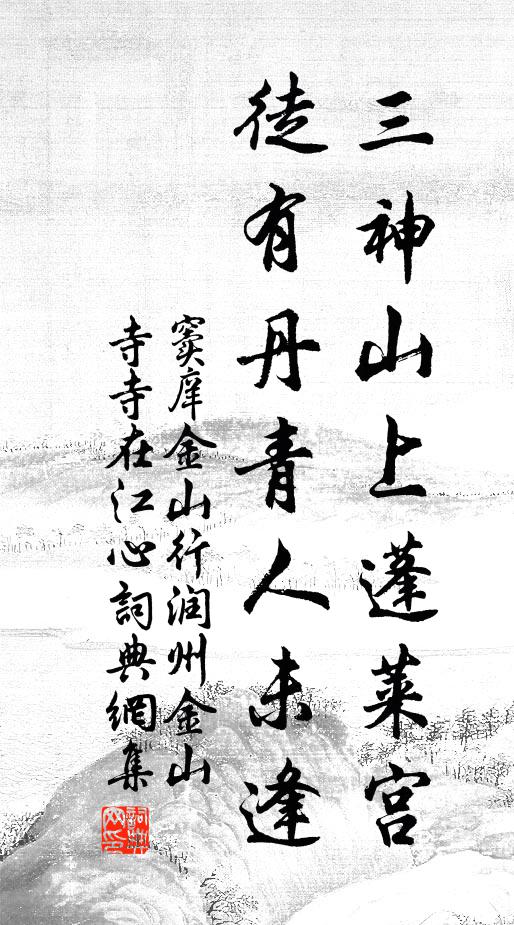 三神山上蓬莱宫
徒有丹青人未逢
窦庠金山行润州金山
寺寺在江心詞典網集
詞典网印